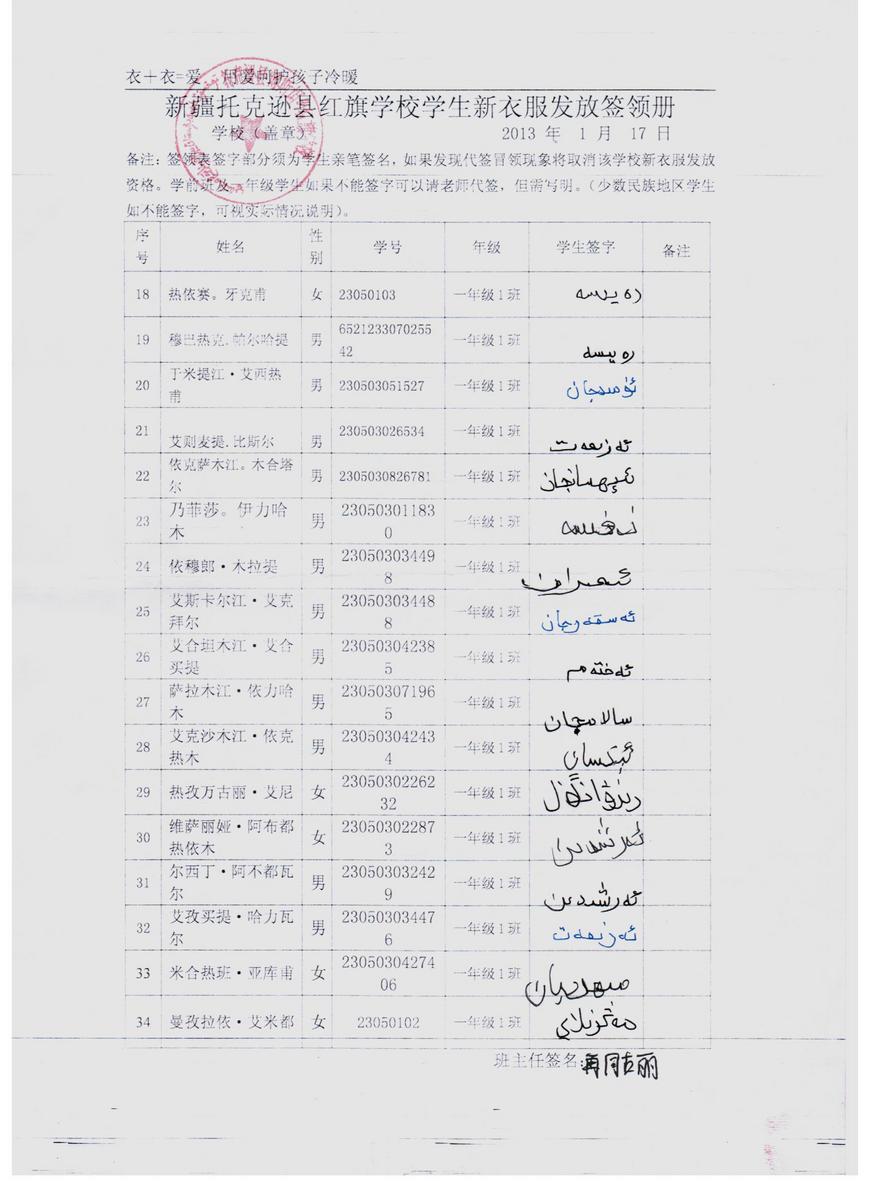 衣+衣=爱 用爱呵护孩子冷暖
新疆托克逊县红旗学校学生新衣服发放签领册
学校（盖章） 2013 年 1 月 17 日
备注：签领表签字部分须为学生亲笔签名，如果发现代签冒领现象将取消该学校新衣服发放
资格。学前班及一年级学生如果不能签字可以请老师代签，但需写明。（少数民族地区学生
如不能签字，可视实际情况说明）。
序号 姓名 性别 学号 年级 学生签字 备注
18 热依赛。牙克甫 女 23050103 一年级1班
19 穆巴热克.帕尔哈提 男 652123307025542 一年级1班
20 于米提江·艾西热甫 男 230503051527 一年级1班
21 艾则麦提.比斯尔 男 230503026534 一年级1班 ئەزىمەت
22 依克萨木江。木合塔尔 男 2305030826781 一年级1班
23 乃菲莎。伊力哈木 男 230503011830 一年级1班
24 依穆郎·木拉提 男 230503034498 一年级1班 ئىمران
25 艾斯卡尔江·艾克拜尔 男 230503034488 一年级1班 ئەسقەرجان
26 艾合坦木江·艾合买提 男 230503042385 一年级1班 ئەختەم
27 萨拉木江·依力哈木 男 230503071965 一年级1班 سالامجان
28 艾克沙木江·依克热木 男 230503042434 一年级1班
29 热孜万古丽·艾尼 女 2305030226232 一年级1班
30 维萨丽娅·阿布都热依木 女 230503022873 一年级1班
31 尔西丁·阿不都瓦尔 男 230503032429 一年级1班 ئەرشىدىن
32 艾孜买提·哈力瓦尔 男 230503034476 一年级1班 ئەزىمەت
33 米合热班·亚库甫 女 2305030427406 一年级1班
34 曼孜拉依·艾米都 女 23050102 一年级1班
班主任签名:再同古丽